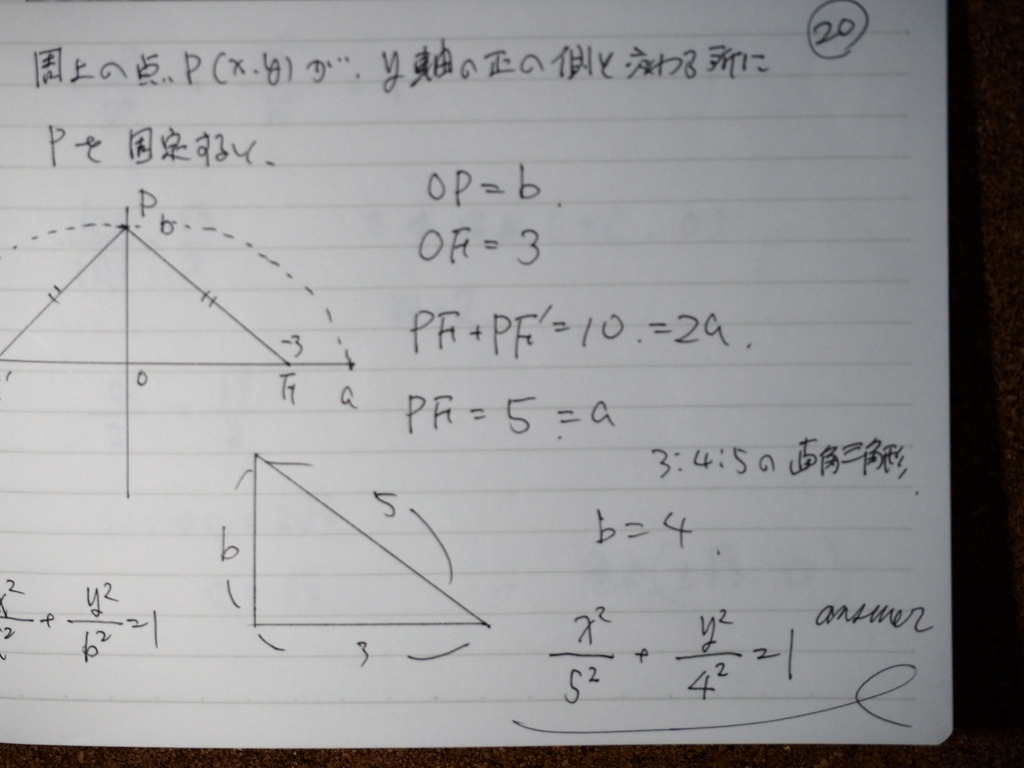 20
周上の点、P(x.y)が… y軸の正の側と交わる所に
Pを固定すると、
OP=b.
OF=3
PF+PF'=10.=2a.
PF=5.=a
P
b
-3
O
F
a
3:4:5の直角三角形.
b=4.
b
5
3
x²/ ² + y²/b² =1
x²/5² + y²/4² =1
answer